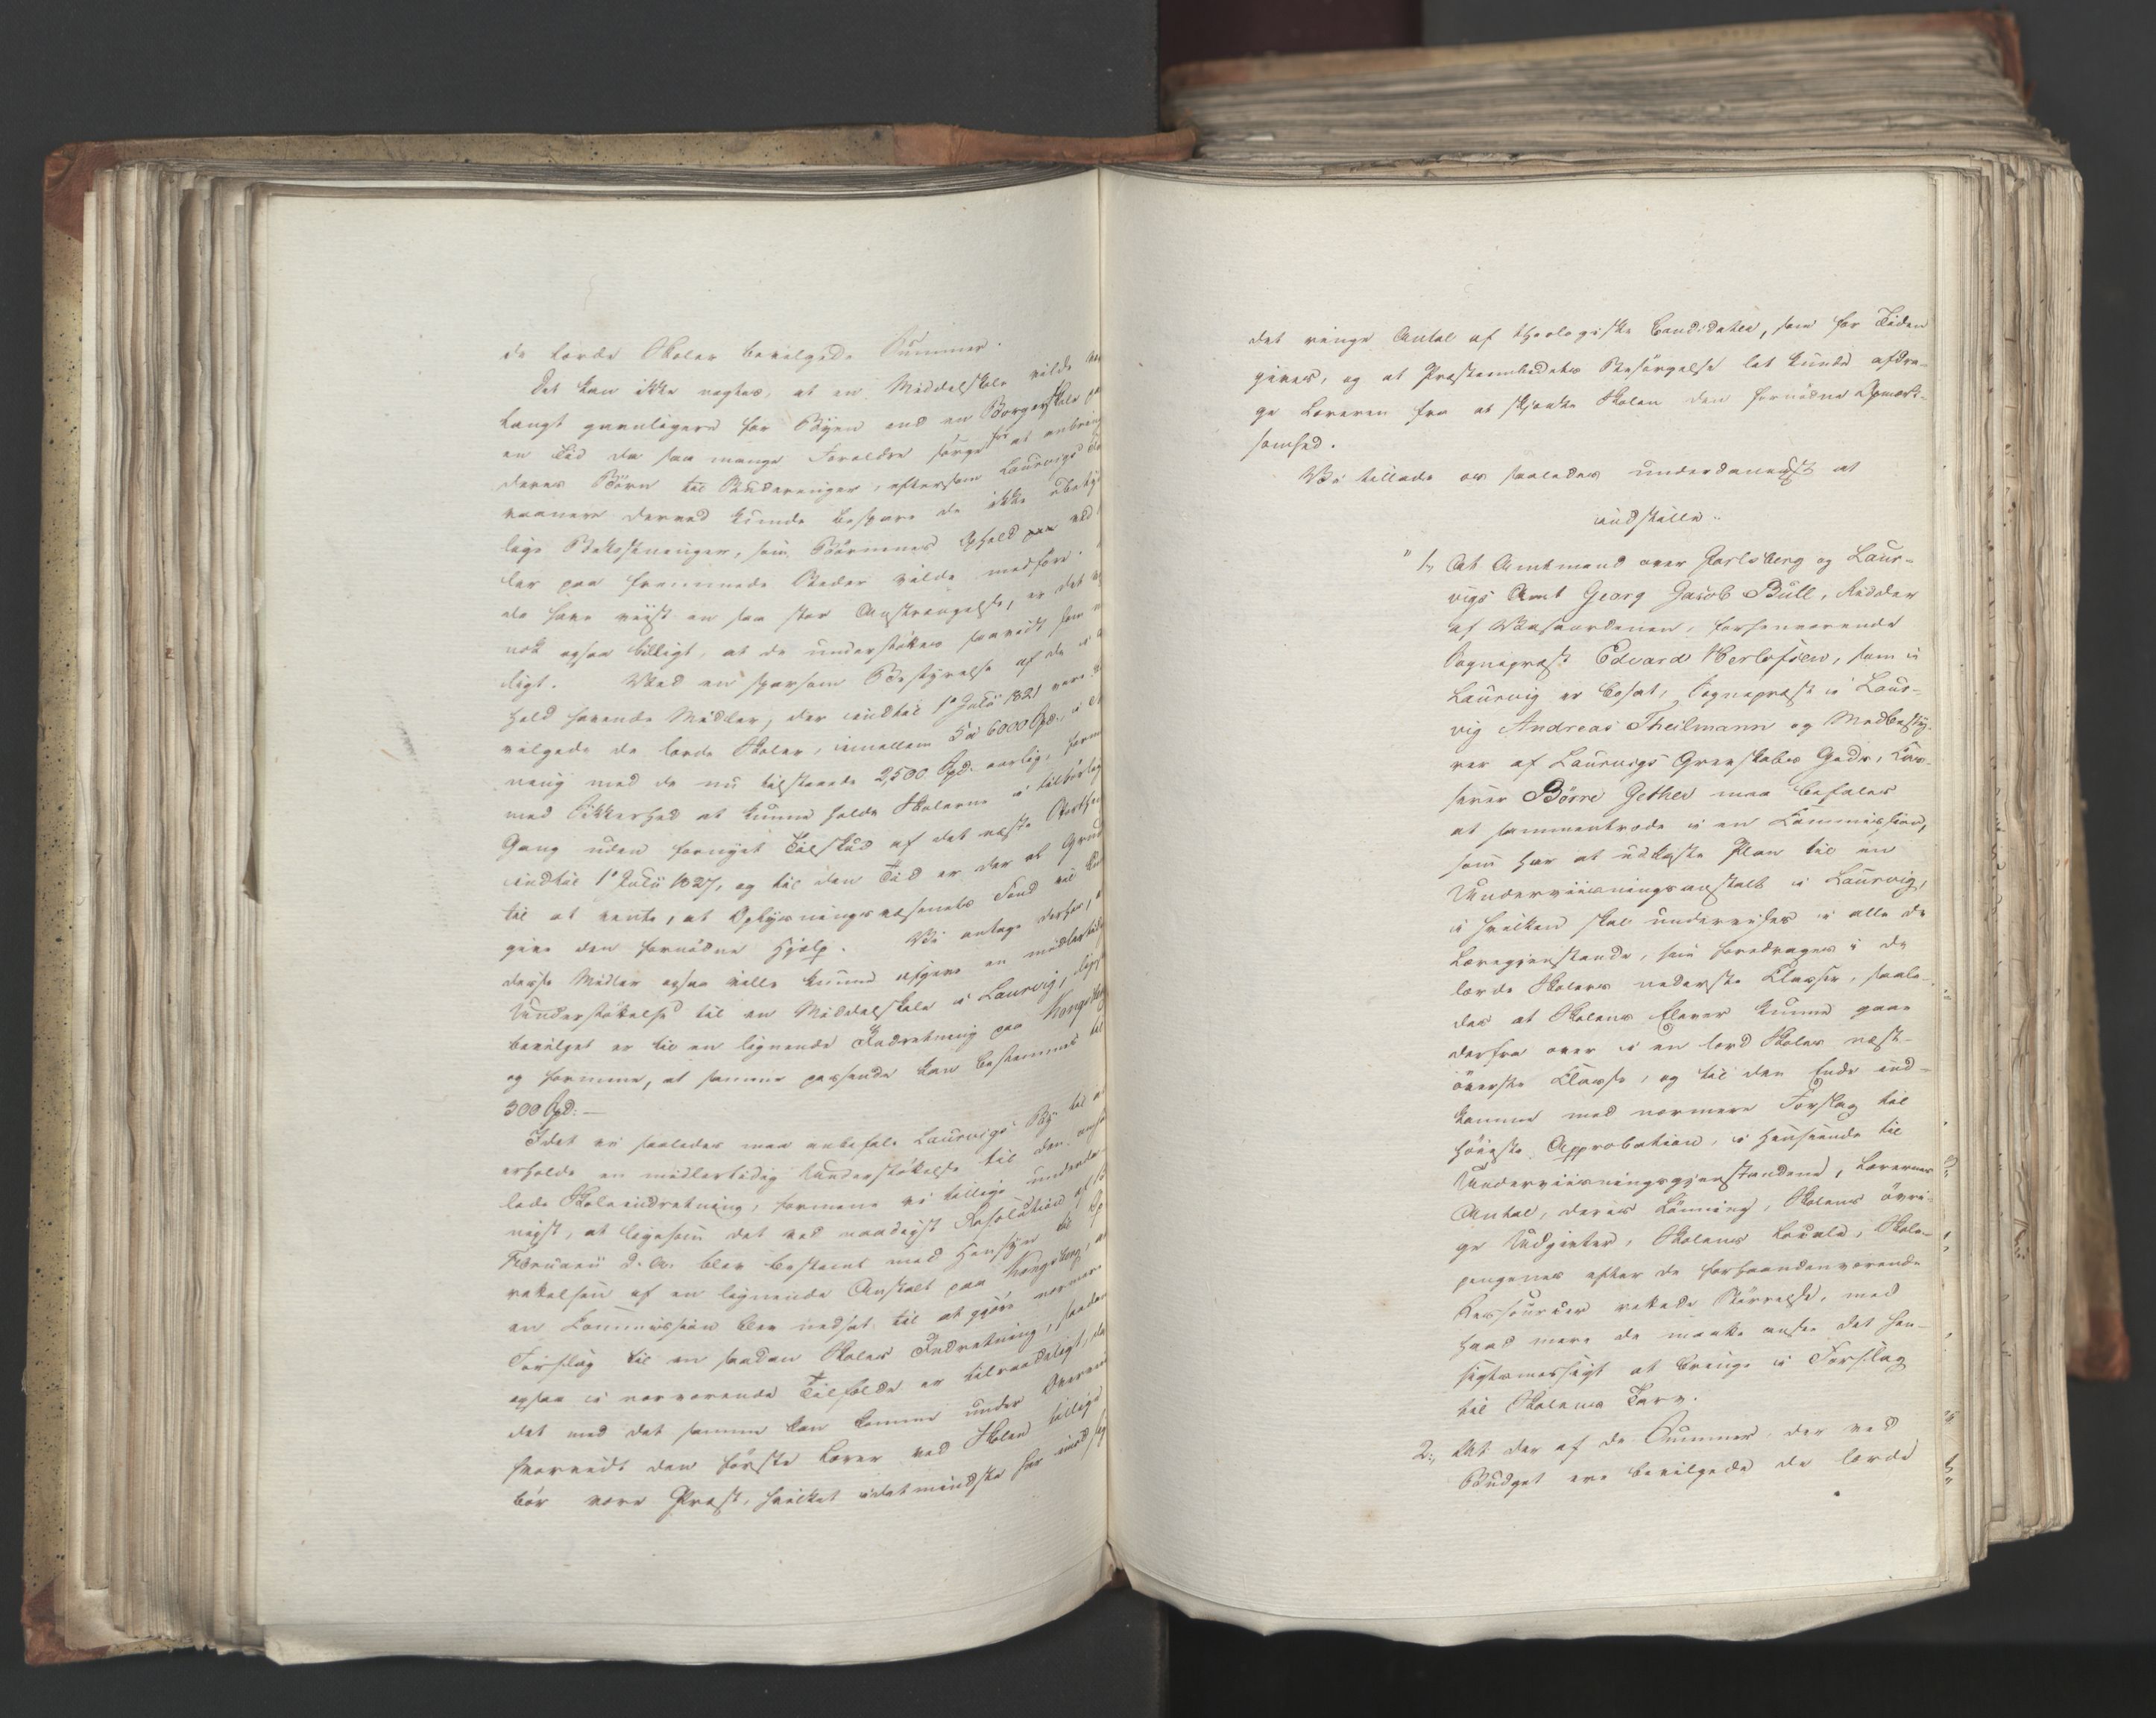 de lærde Skoler bevilgede Summer.
Det kan ikke negtes, at en Middelskole vilde
langt gavnligere for Byen end en Borgerskole
en Tid da saa mange Forældre sørge for at
deres Børn til Studeringer, eftersom Laurvigs
vaanere derved kunde bespare de ikke
lige Bekostninger, som Børnenes Ophold ved
ler paa fremmede Steder vilde medføre.
de have viist en saa stor Anstrængelse, er det
nok ogsaa billigt, at de understøttes saavidt
ligt. Ved en sparsom Bestyrelse af de i
hold havende Midler, der indtil 1e Julii 1821 vare
vilgede de lærde Skoler, imellem 5 à 6000 Spd., i
ning med de nu tilstaaede 2,500 Spd. aarlig,
med Sikkerhed at kunne holde Skolerne i
Gang uden fornyet Tilskud af det næste
indtil 1e Julii 1827, og til den Tid er der al
til at vente, at Oplysningsvæsenets Fond vil
give den fornødne Hjælp. Vi antage derhos,
disse Midler ogsaa ville kunne afgive en
Understøttelse til en Middelskole i Laurvig,
bevilget er til en lignende Indretning paa Kongsberg
og formene, at samme passende kan bestemmes til
300 Spd. —
Idet vi saaledes maa anbefale Laurvigs By til at
erholde en midlertidig Understøttelse til den
lede Skoleindretning, formene vi tillige
nigst, at ligesom det ved naadigst Resolution af
Februarii d. A. blev bestemt med Hensyn til
rettelsen af en lignende Anstalt paa Kongsberg, at
en Commission blev nedsat til at gjøre nærmere
Forslag til en saadan Skoles Indretning,
ogsaa i nærværende Tilfælde er tilraadeligt,
det med det samme kan komme under
hvorvidt den første Lærer ved Skolen tillige
bør være Præst, hvilket idetmindste har imod sig
det ringe Antal af theologiske Candidater, som for Tiden
gives, og at Præsteembedets Besørgelse let kunde afdra-
ge Læreren fra at skjænke Skolen den fornødne Opmærk-
somhed.
Vi tillade os saaledes underdanigst at
indstille:
" 1, At Amtmand over Jarlsberg og Laur-
vigs Amt Georg Jacob Bull, Ridder
af Vasaordenen, forhenværende
Sognepræst Edvard Herlofsen, som i
Laurvig er bosat, Sognepræst i Laur-
vig Andreas Theilmann og Medbesty-
rer af Laurvigs Grevskabs Gods,
Børre Gether maa befales
at sammentræde i en Commission,
som har at udkaste Plan til en
Underviisningsanstalt i Laurvig,
i hvilken skal undervises i alle de
Læregjenstande, som foredrages i de
lærde Skolers nederste Classer, saale-
des at Skolens Elever kunne gaae
derfra over i en lærd Skoles næst-
øverste Classe, og til den Ende ind-
komme med nærmere Forslag til
høieste Approbation, i Henseende til
Underviisningsgjenstandene, Lærernes
Antal, deres Lønning, Skolens øvri-
ge Udgivter, Skolens Locale, Skole-
pengenes efter de forhaandenværende
Ressourcer rettede Størrelse, med
hvad mere de maatte ansee det hen-
sigtsmæssigt at bringe i Forslag
til Skolens Tarv.
2, At der af de Summer, der ved
Budget ere bevilgede de lærde